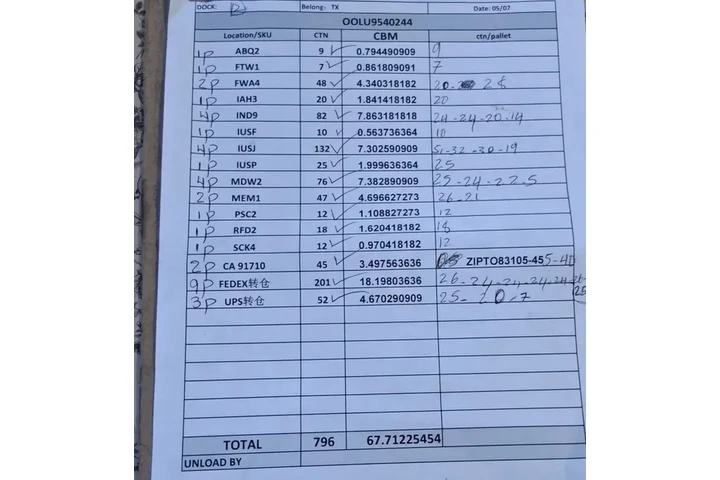 DOCK: Belong: TX Date: 05/07
OOLU9540244
Location/SKU CTN CBM ctn/pallet
1P ABQ2 9 0.794490909 9
1P FTW1 7 0.861809091 7
2P FWA4 48 4.340318182 20- 28
1P IAH3 20 1.841418182 20
4P IND9 82 7.863181818 24-24-20-14
1P IUSF 10 0.563736364 10
4P IUSJ 132 7.302590909 51-32-30-19
1P IUSP 25 1.999636364 25
4P MDW2 76 7.382890909 25-24-22-5
2P MEM1 47 4.696627273 26-21
1P PSC2 12 1.108827273 12
1P RFD2 18 1.620418182 18
1P SCK4 12 0.970418182 12
2P CA 91710 45 3.497563636 ZIPTO83105-45 5-40
9P FEDEX转仓 201 18.19803636 26-24-24-24-24-26-
25
3P UPS转仓 52 4.670290909 25-20-7
TOTAL 796 67.71225454
UNLOAD BY